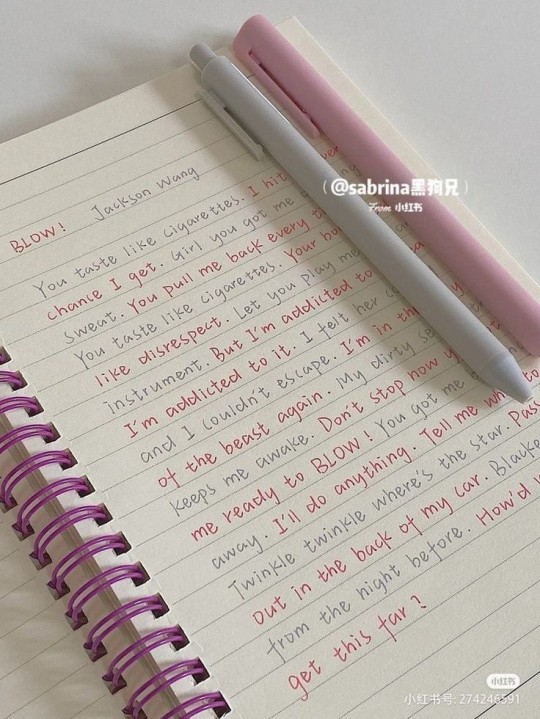 BLOW! Jackson Wang
You taste like cigarettes. I hit
chance I get. Girl you got me
sweat. You pull me back every
You taste like cigarettes. Your
like disrespect. Let you play me
instrument. But I'm addicted to
I'm addicted to it. I felt her
and I couldn't escape. I'm in the
of the beast again. My dirty
keeps me awake. Don't stop now
me ready to BLOW! You got me
away. I'll do anything. Tell me
Twinkle twinkle where's the star.
out in the back of my car.
from the night before. How'd
get this far?
(@sabrina黑狗兄)
From 小红书
小红书
小红书号: 274246591